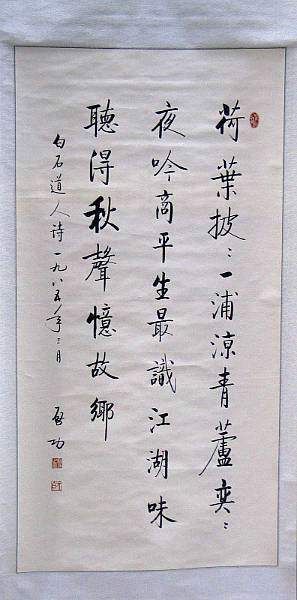 荷葉披〻一浦涼青蘆奕〻
夜吟商平生最識江湖味
聽得秋聲憶故鄉
白石道人詩一九八五年二月
启功